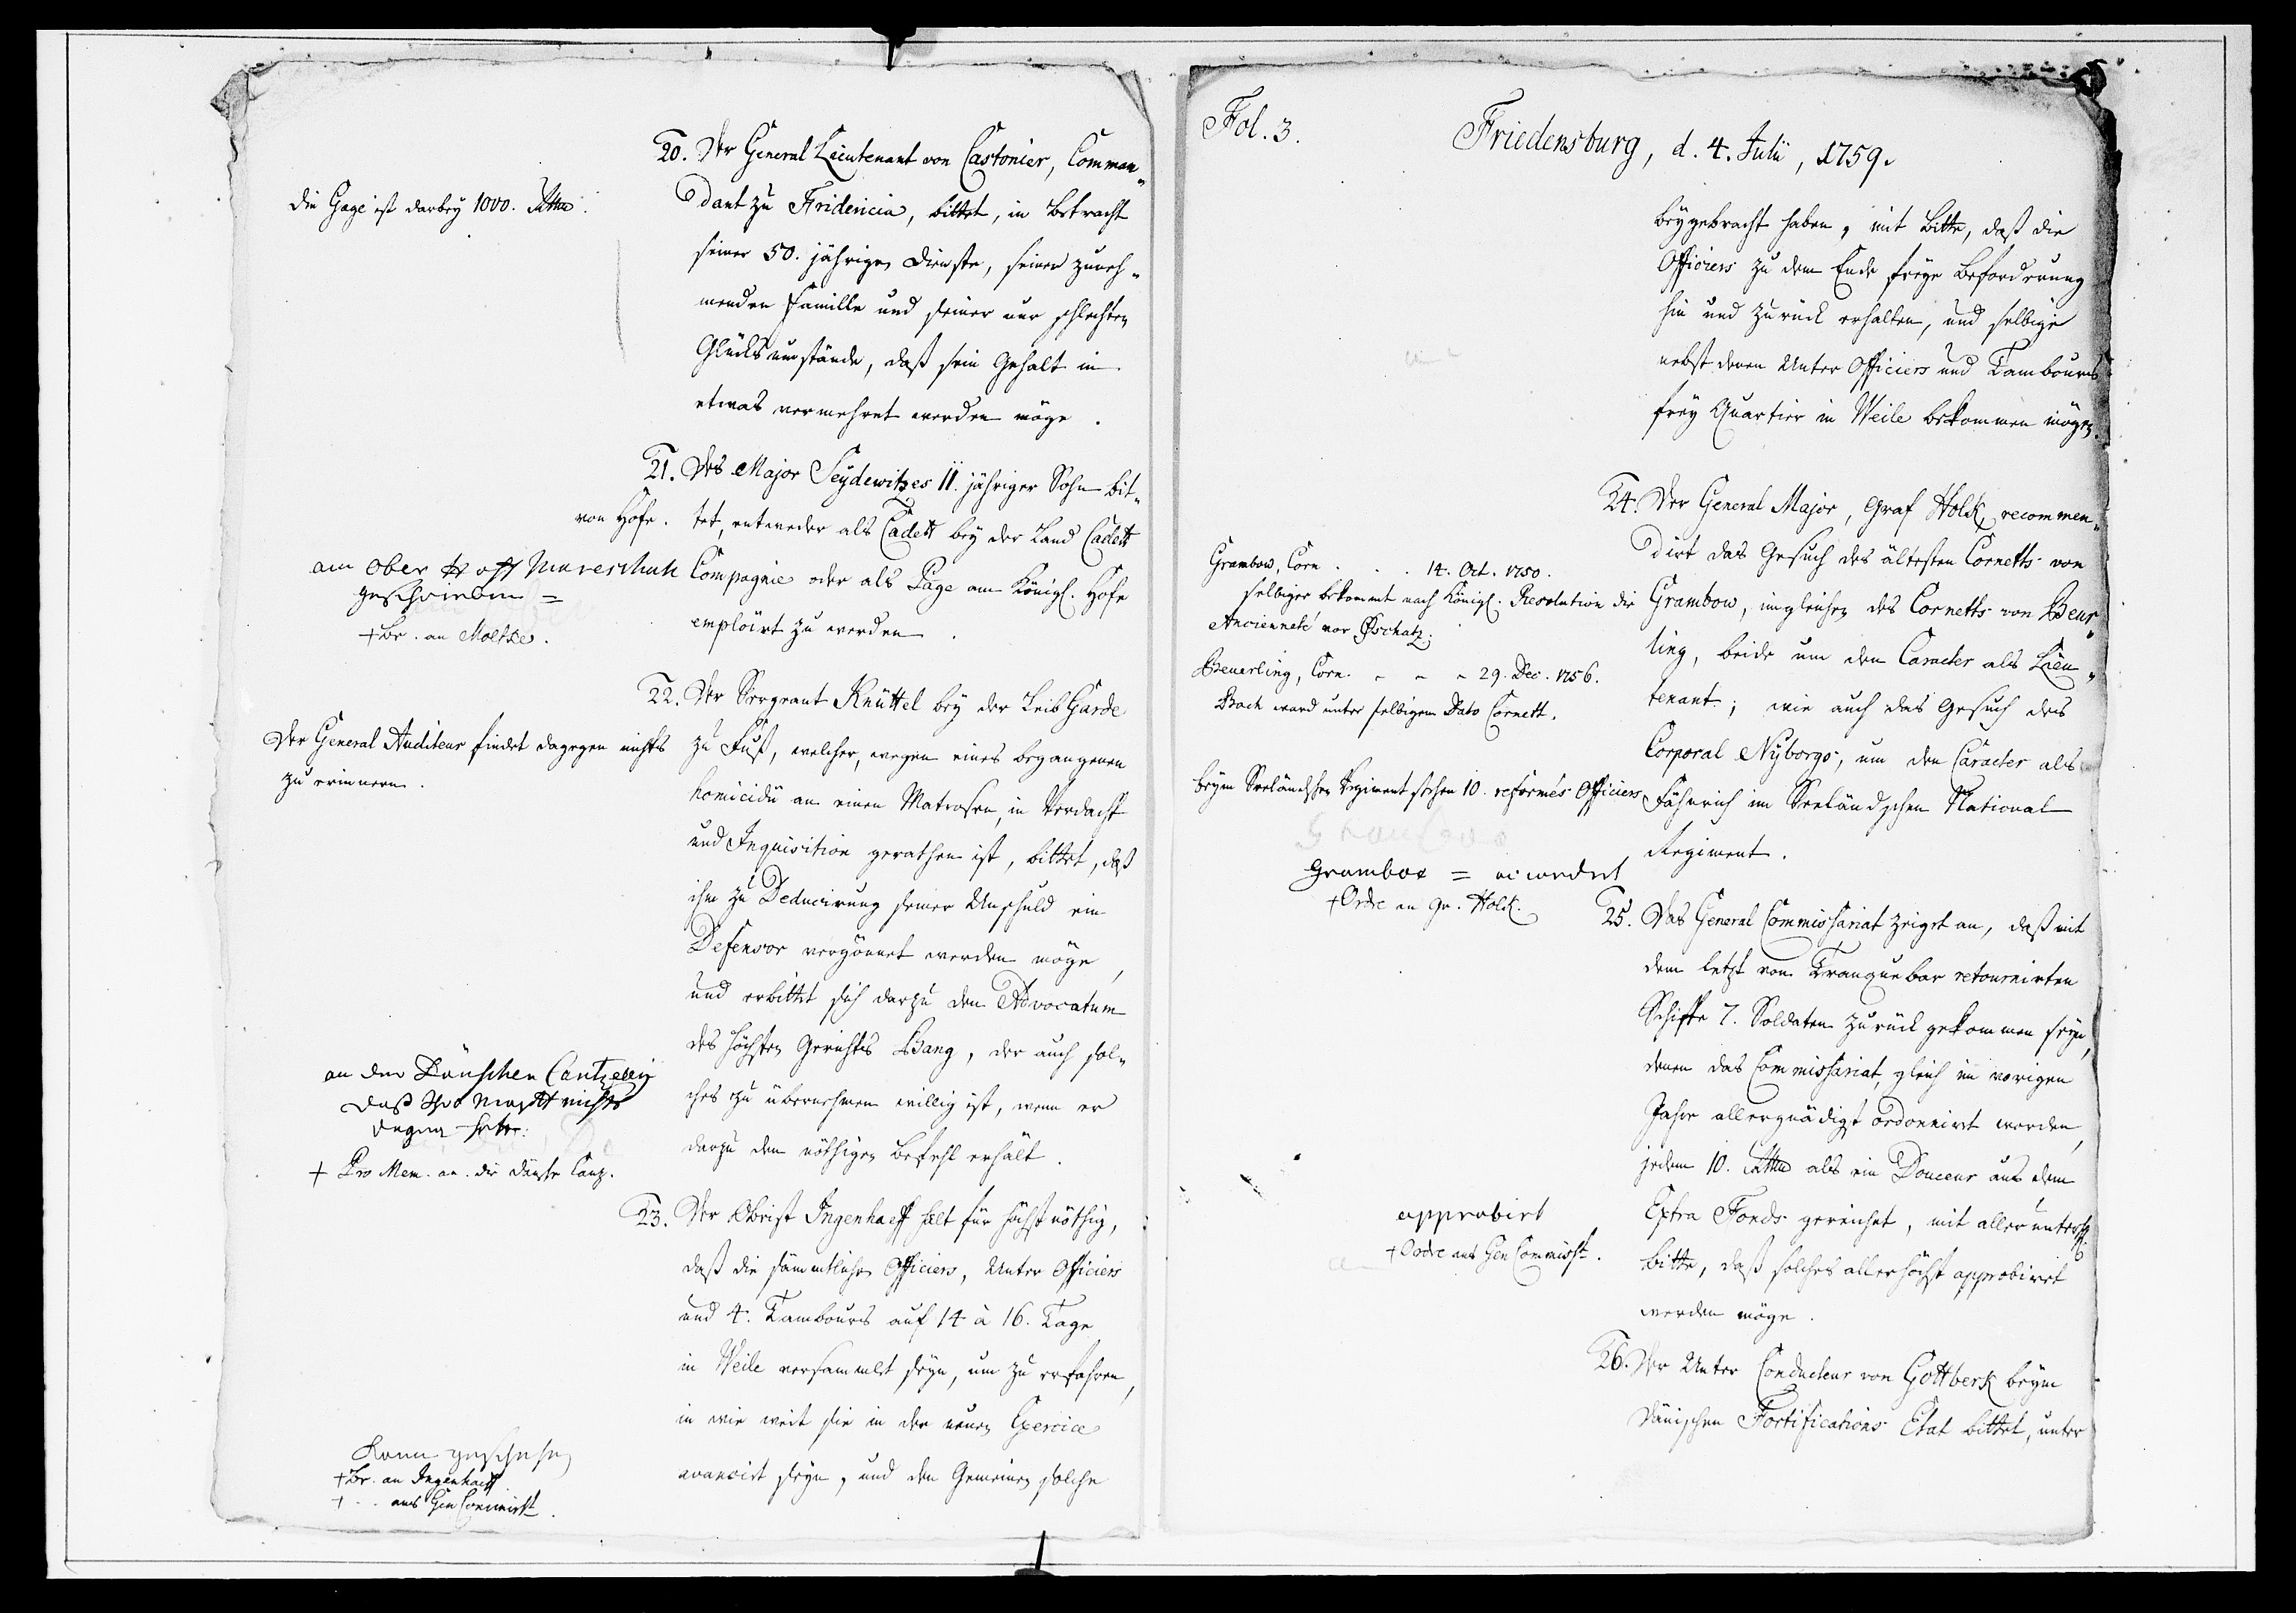 20. Der General Lieutenant von Castonier, Comman„
dant zu Fridericia, bittet, in Betracht
seiner 50. jährigen Dienste, seiner zuneh„
menden Famille und seiner nur schlechten
Glücksumstände, daß sein Gehalt in
etwas vermehret werden möge.
die Gage ist darbey 1000. Rthlr.
21. Des Major Seydewitzes 11. jähriger Sohn bit„
tet, entweder als Cadett bey der Land Cadett
Compagnie oder als Page am Königl. Hofe
emploirt zu werden.
von Hofe.
am Ober Hoff Mareschal
geschrieben =
+ Br. an Moltke.
22. Der Sergeant Knüttel bey der Leib Garde
zu Fuß, welcher, wegen eines begangenen
homicidii an einen Matrosen, in Verdacht
und Inquisition gerathen ist, bittet, daß
ihm zu Deducirung seiner Unschuld ein
Defensor vergönnet werden möge,
und erbittet sich darzu den Advocatum
des höchsten Gerichts Bang, der auch sol„
ches zu übernehmen willig ist, wenn er
darzu den nöthigen Befehl erhält.
Der General Auditeur findet dagegen nichts
zu erinnern.
an der Dänschen Cantzeley
daß Ihro Maytt nichts
dagegen hätte.
+ Pro Mem. an die Dänsche Canz.
23. Der Obrist Ingenhaeff hält für höchst nöthig,
daß die sämmtlichen Officiers, Unter Officiers
und 4. Tambours auf 14 à 16. Tage
in Weile versammelt seyn, um zu erfahren,
in wie weit sie in der neuen Exercice
avancirt seyn, und den Gemeinen solche
Kann geschehen
+ Br. an Ingenhaeff.
+ - - ans Gen Commisst.
Fol. 3.
Friedensburg, d. 4. Julii, 1759.
beygebracht haben, mit Bitte, daß die
Officiers zu dem Ende freye Beforderung
hin und zurück erhalten, und selbige
nebst denen Unter Officiers und Tambours
frey Quartier in Weile bekommen mögen.
24. Der General Major, Graf Holck, recommen„
dirt das Gesuch des ältesten Cornetts von
Grambow, imgleichen des Cornetts von Beur„
ling, beide um den Caracter als Lieu„
tenant; wie auch das Gesuch des
Corporal Nyborgs, um den Caracter als
Fähnrich im Seeländschen National
Regiment.
Grambow, Corn. . . 14. Oct. 1750.
selbiger bekommt nach Königl. Resolution die
Ancienneté vor Pschatz.
Beuerling, Corn. - - - 29. Dec. 1756.
Bach ward unter selbigem Dato Cornett.
beym Seeländschen Regiment stehen 10. reformés Officiers
Grambow = accordret
+ Ordre an Gr. Holck.
25. Das General Commissariat zeiget an, daß mit
dem letzt von Tranquebar retournirten
Schiffe 7. Soldaten zurück gekommen seyn,
denen das Commissariat, gleich im vorigen
Jahre allergnädigst ordonnirt worden,
jedem 10. Rthlr als ein Douceur aus dem
Extra Fonds gereichet, mit allerunterth.
Bitte, daß solches allerhöchst approbiret
werden möge.
approbirt
+ Ordre ans Gen Commisst.
26. Der Unter Conducteur von Gottberk beym
Dänischen Fortifications Etat bittet, unter